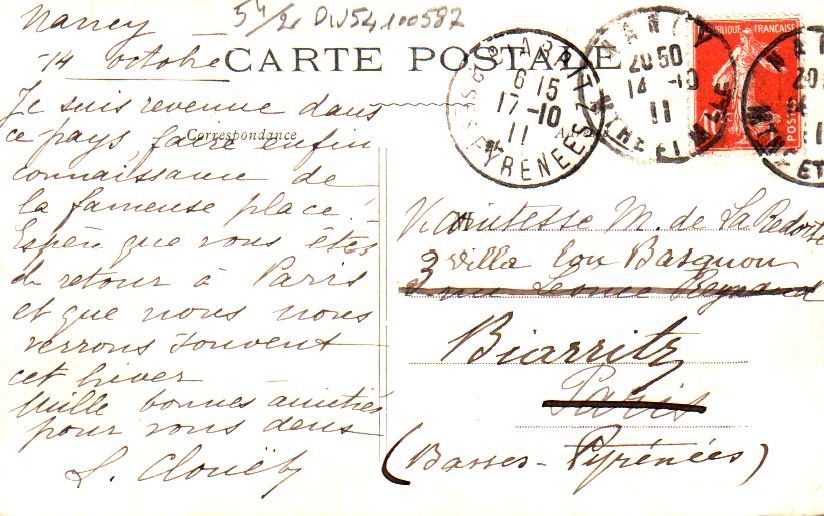 Nancy
14 octobre
5 4/21 DW54100587
CARTE POSTALE
Correspondance
Je suis revenue dans
ce pays, faire enfin
connaissance de
la fameuse place !
Espère que vous êtes
de retour à Paris
et que nous nous
verrons souvent
cet hiver
Mille bonnes amitiés
pour vous deux
BIARRITZ
6 15
17-10
11
BSES PYRENEES
NANCY
20 50
14 -10
11
MTHE ET MLLE
REPUBLIQUE FRANCAISE
10
POSTES
NA
20
11
MTHE ET
Vicomtesse M. de La Redorte
villa Lou Basquou
3 rue Léonce Reynaud
Biarritz
Paris
(Basses-Pyrénées)